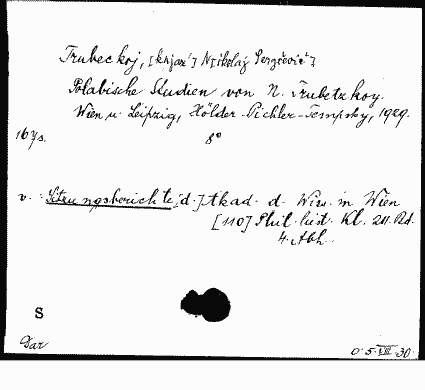 Trubeckoj, [knjaz'] N[ikolaj Sergěevič]
Polabische Studien von N. Trubetzkoy.
Wien u. Leipzig, Hölder-Pichler-Tempsky, 1929.
167 s. 8°
v. : Sitzungsberichte [d.] Akad. d. Wiss. in Wien
[110] Phil. hist. Kl. 211. Bd.
4. Abh.
S
Dar
0. 5. VIII 30.